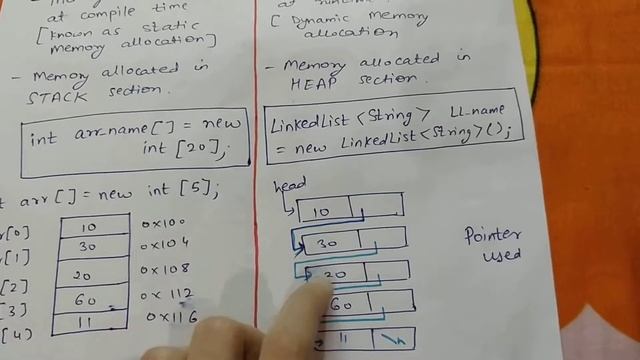 at compile time
[known as static
memory allocation]
- Memory allocated in
STACK section.
int arr_name[] = new
int [20];
arr[] = new int [5];
[0]
10
0x100
[1]
30
0x104
[2]
20
0x108
[3]
60
0x112
[4)
11
0x116
[Dynamic memory
allocation
- Memory allocated in
HEAP section.
LinkedList<String> LL_name
= new LinkedList<String>();
head
10
30
20
60
11
Pointer
used